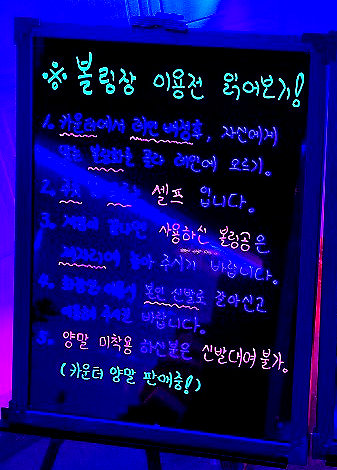 ※ 볼링장 이용전 읽어보기!
1. 카운터에서 레인 배정후, 자신에게
맞는 볼링화를 골라 레인에 오르기.
2. 셀프 입니다.
3. 사용하신 볼링공은
놓아 주시기 바랍니다.
4. 본인 신발로 갈아신고
바랍니다.
5. 양말 미착용 하신분은 신발대여 불가.
(카운터 양말 판매중!)